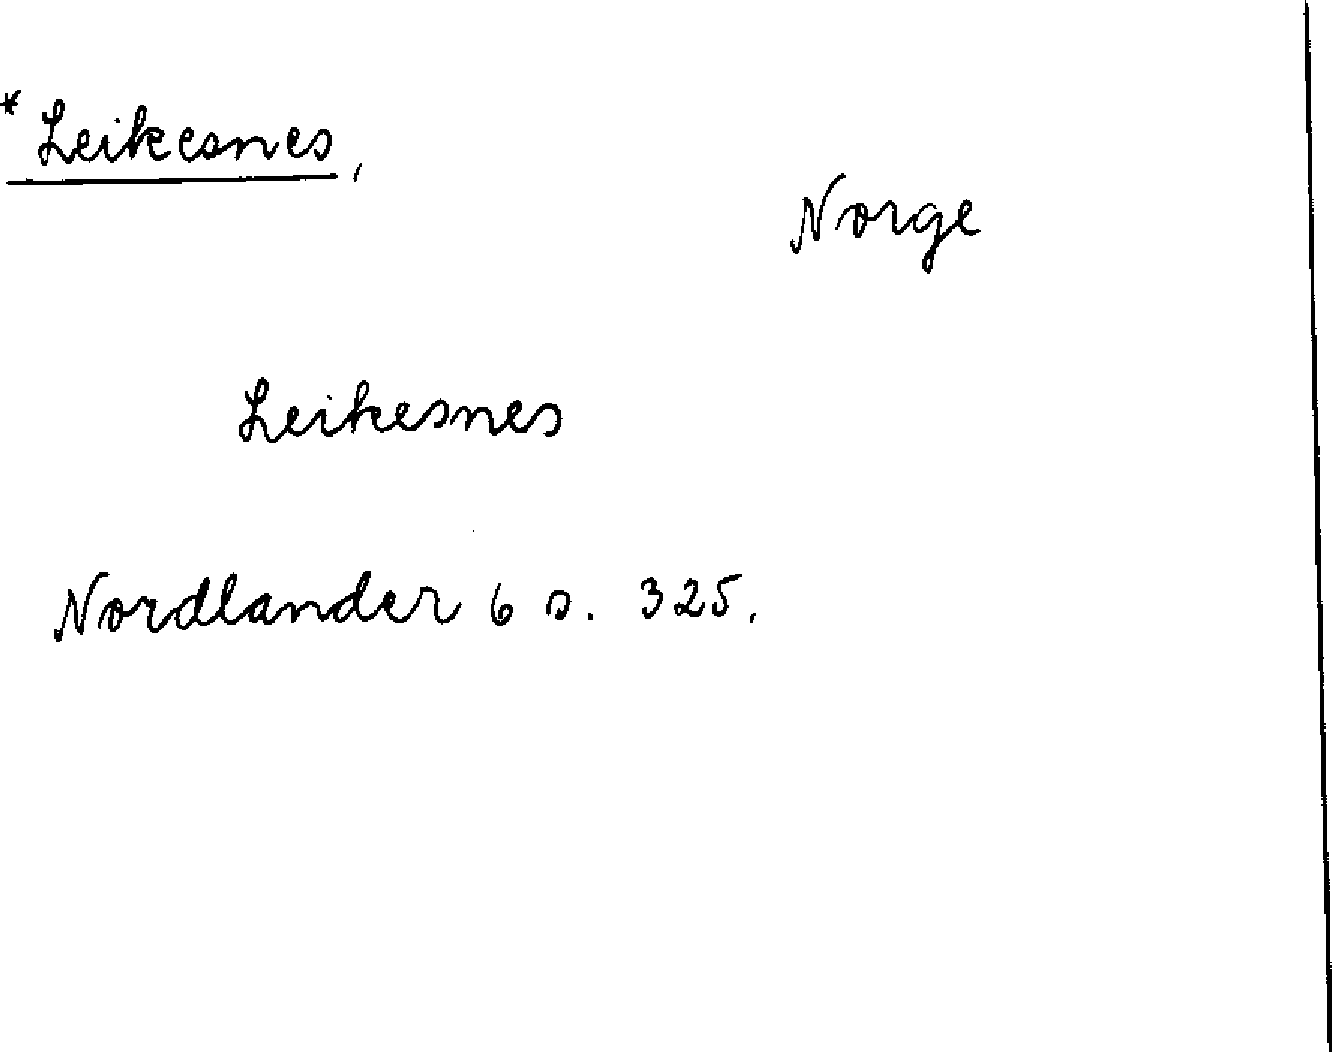 * Leikesnes,
Norge
Leikesnes
Nordlander 6 s. 325.